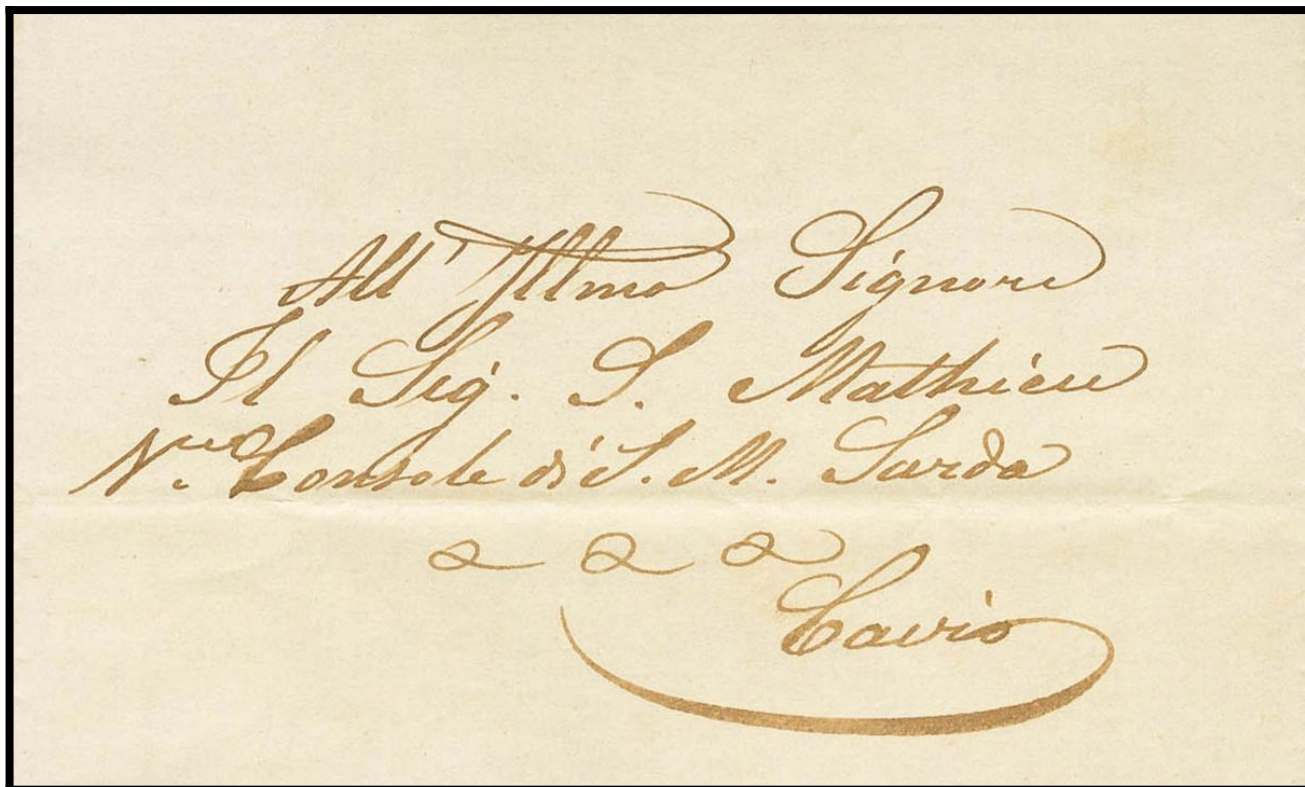 All' Illmo Signore
Il Sig. S. Mathieu
Console di S. M. Sarda
a a a
Cairo